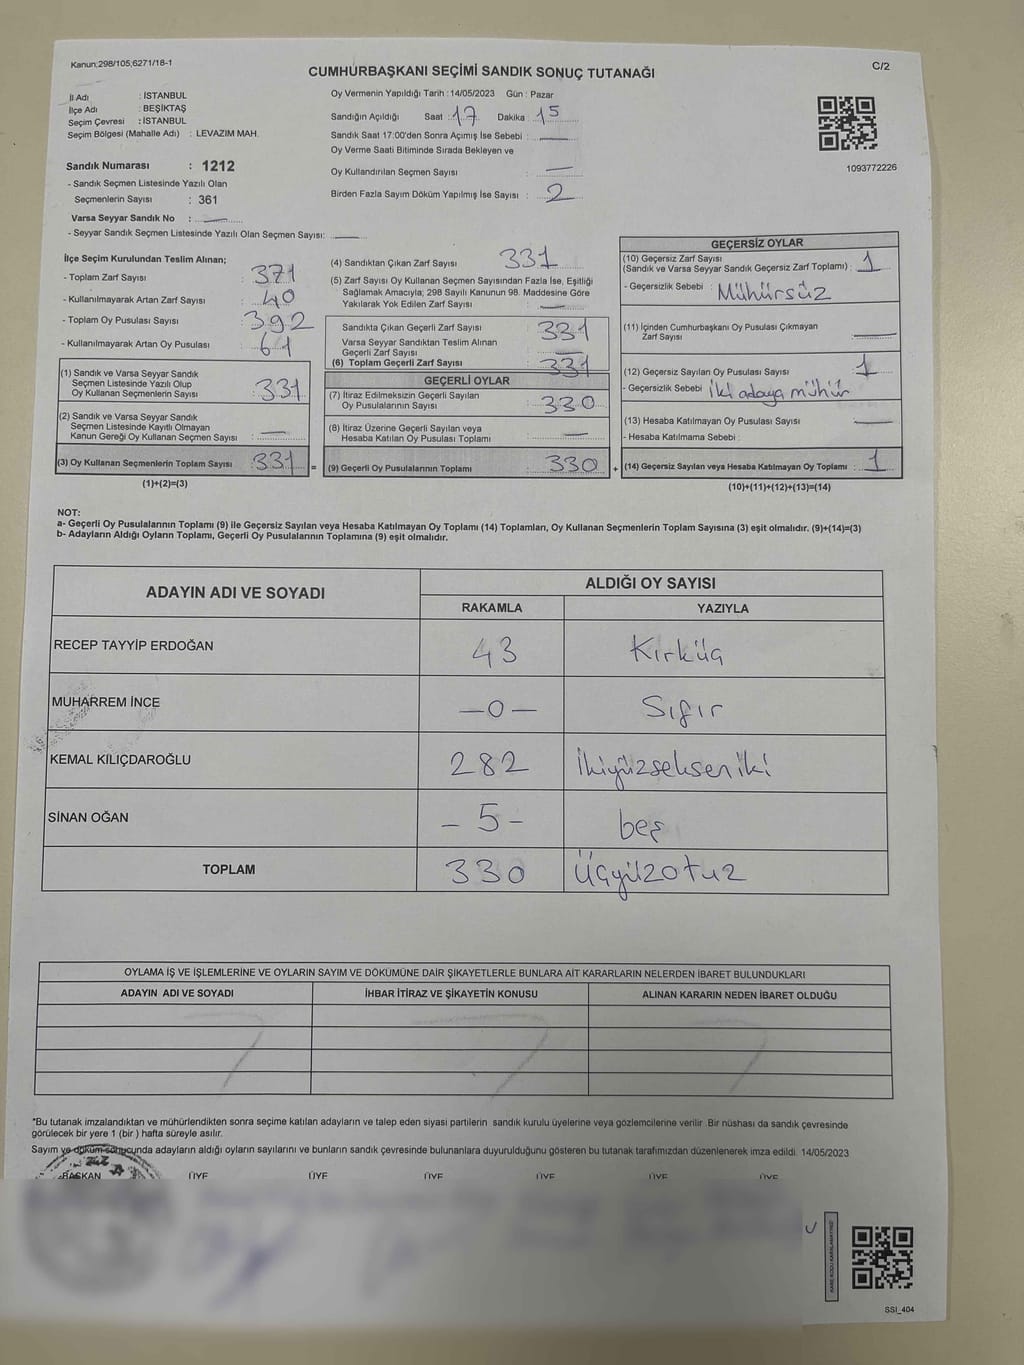 Kanun:298/105,6271/18-1
C/2
CUMHURBAŞKANI SEÇİMİ SANDIK SONUÇ TUTANAĞI
İl Adı : İSTANBUL
İlçe Adı : BEŞİKTAŞ
Seçim Çevresi : İSTANBUL
Seçim Bölgesi (Mahalle Adı) : LEVAZIM MAH.
Sandık Numarası : 1212
- Sandık Seçmen Listesinde Yazılı Olan
Seçmenlerin Sayısı : 361
Varsa Seyyar Sandık No :
- Seyyar Sandık Seçmen Listesinde Yazılı Olan Seçmen Sayısı:
Oy Vermenin Yapıldığı Tarih : 14/05/2023 Gün : Pazar
Sandığın Açıldığı Saat : 17 Dakika : 15
Sandık Saat 17:00'den Sonra Açımış İse Sebebi :
Oy Verme Saati Bitiminde Sırada Bekleyen ve
Oy Kullandırılan Seçmen Sayısı :
Birden Fazla Sayım Döküm Yapılmış İse Sayısı : 2
1093772226
İlçe Seçim Kurulundan Teslim Alınan;
- Toplam Zarf Sayısı : 371
- Kullanılmayarak Artan Zarf Sayısı : 40
- Toplam Oy Pusulası Sayısı : 392
- Kullanılmayarak Artan Oy Pusulası : 61
(1) Sandık ve Varsa Seyyar Sandık
Seçmen Listesinde Yazılı Olup
Oy Kullanan Seçmenlerin Sayısı : 331
(2) Sandık ve Varsa Seyyar Sandık
Seçmen Listesinde Kayıtlı Olmayan
Kanun Gereği Oy Kullanan Seçmen Sayısı :
(3) Oy Kullanan Seçmenlerin Toplam Sayısı : 331
(1)+(2)=(3)
(4) Sandıktan Çıkan Zarf Sayısı : 331
(5) Zarf Sayısı Oy Kullanan Seçmen Sayısından Fazla İse, Eşitliği
Sağlamak Amacıyla; 298 Sayılı Kanunun 98. Maddesine Göre
Yakılarak Yok Edilen Zarf Sayısı :
Sandıkta Çıkan Geçerli Zarf Sayısı : 331
Varsa Seyyar Sandıktan Teslim Alınan
Geçerli Zarf Sayısı
(6) Toplam Geçerli Zarf Sayısı : 331
GEÇERLİ OYLAR
(7) İtiraz Edilmeksizin Geçerli Sayılan
Oy Pusulalarının Sayısı : 330
(8) İtiraz Üzerine Geçerli Sayılan veya
Hesaba Katılan Oy Pusulası Toplamı :
= (9) Geçerli Oy Pusulalarının Toplamı : 330
GEÇERSİZ OYLAR
(10) Geçersiz Zarf Sayısı
(Sandık ve Varsa Seyyar Sandık Geçersiz Zarf Toplamı) : 1
- Geçersizlik Sebebi : Mühürsüz
(11) İçinden Cumhurbaşkanı Oy Pusulası Çıkmayan
Zarf Sayısı :
(12) Geçersiz Sayılan Oy Pusulası Sayısı : 1
- Geçersizlik Sebebi : İki adaya mühür
(13) Hesaba Katılmayan Oy Pusulası Sayısı :
- Hesaba Katılmama Sebebi :
+ (14) Geçersiz Sayılan veya Hesaba Katılmayan Oy Toplamı : 1
(10)+(11)+(12)+(13)=(14)
NOT:
a- Geçerli Oy Pusulalarının Toplamı (9) ile Geçersiz Sayılan veya Hesaba Katılmayan Oy Toplamı (14) Toplamları, Oy Kullanan Seçmenlerin Toplam Sayısına (3) eşit olmalıdır. (9)+(14)=(3)
b- Adayların Aldığı Oyların Toplamı, Geçerli Oy Pusulalarının Toplamına (9) eşit olmalıdır.
ADAYIN ADI VE SOYADI
ALDIĞI OY SAYISI
RAKAMLA YAZIYLA
RECEP TAYYİP ERDOĞAN 43 Kırküç
MUHARREM İNCE -0- Sıfır
KEMAL KILIÇDAROĞLU 282 İkiyüzseksen iki
SİNAN OĞAN -5- beş
TOPLAM 330 Üçyüzotuz
OYLAMA İŞ VE İŞLEMLERİNE VE OYLARIN SAYIM VE DÖKÜMÜNE DAİR ŞİKAYETLERLE BUNLARA AİT KARARLARIN NELERDEN İBARET BULUNDUKLARI
ADAYIN ADI VE SOYADI İHBAR İTİRAZ VE ŞİKAYETİN KONUSU ALINAN KARARIN NEDEN İBARET OLDUĞU
*Bu tutanak imzalandıktan ve mühürlendikten sonra seçime katılan adayların ve talep eden siyasi partilerin sandık kurulu üyelerine veya gözlemcilerine verilir. Bir nüshası da sandık çevresinde
görülecek bir yere 1 (bir ) hafta süreyle asılır.
Sayım ve döküm sonucunda adayların aldığı oyların sayılarını ve bunların sandık çevresinde bulunanlara duyurulduğunu gösteren bu tutanak tarafımızdan düzenlenerek imza edildi. 14/05/2023
BAŞKAN ÜYE ÜYE ÜYE ÜYE ÜYE ÜYE
SSI_404